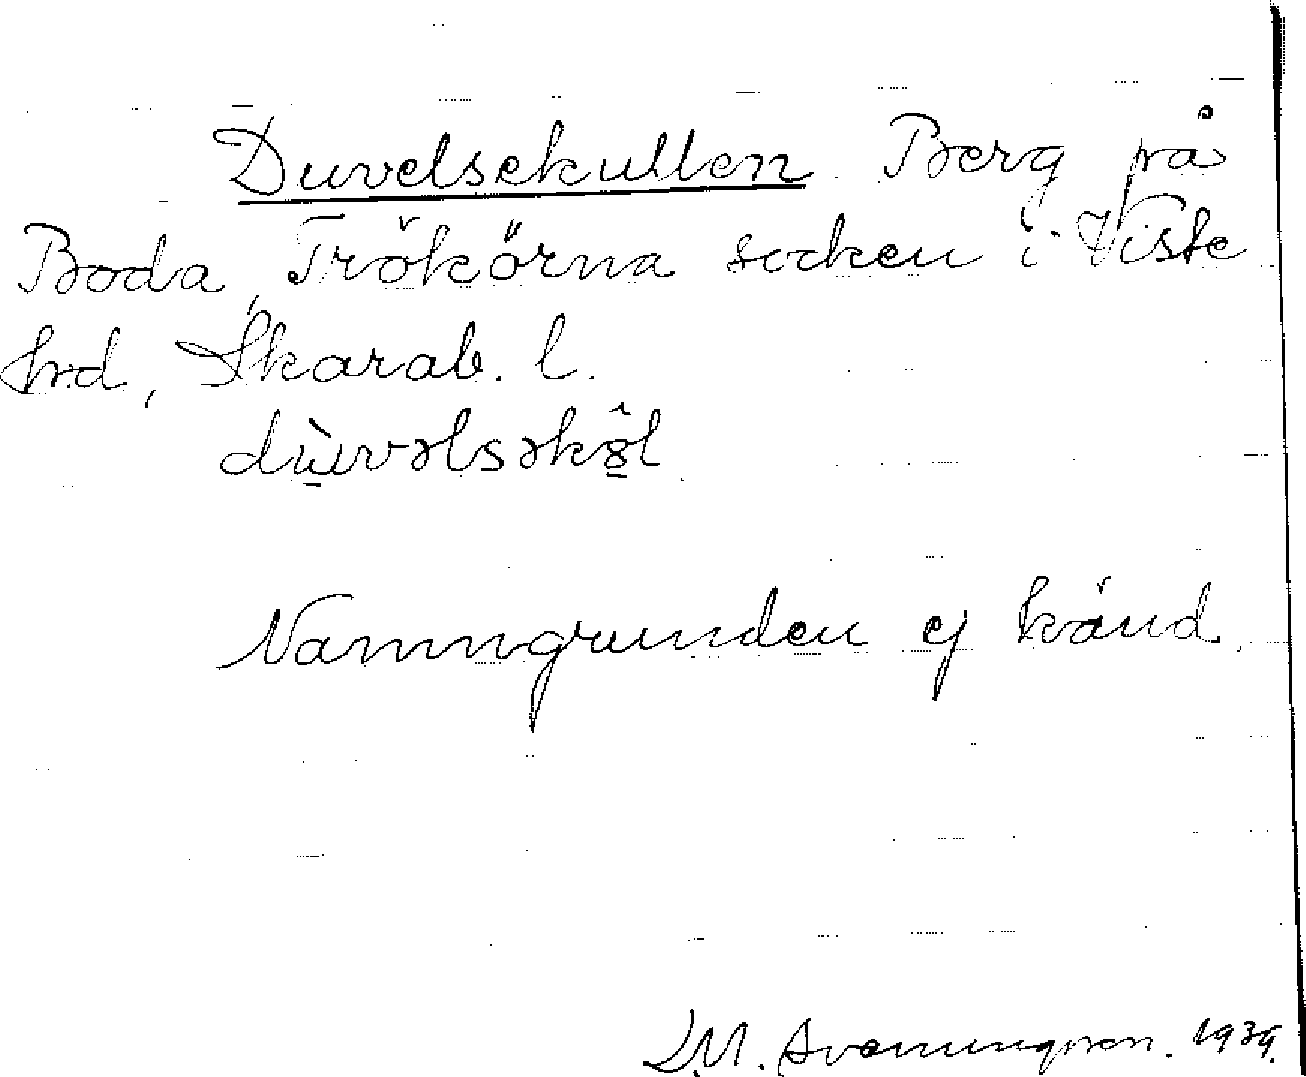 Duvelsekullen. Berg på
Boda, Trökörna socken i Viste
hrd, Skarab. l.
dùvəlsək 8̂l
Namngrunden ej känd.
D.M. Svenungsson. 1939.